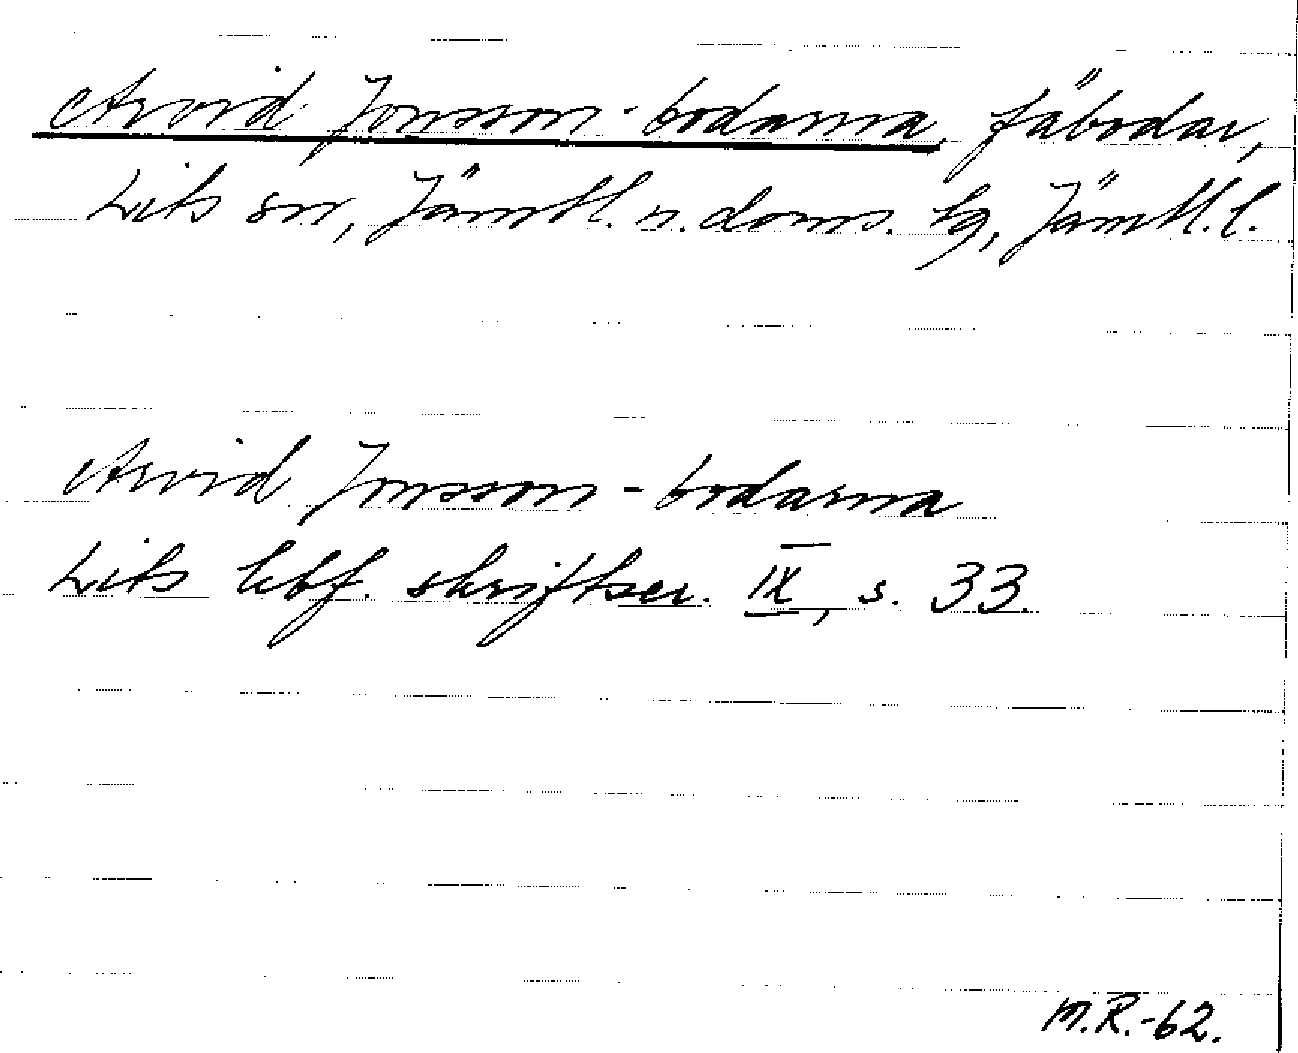 Arvid Jonsson-bodarna, fäbodar,
Lits sn, Jämtl. n. doms. tg, Jämtl. l.
Arvid Jonsson-bodarna
Lits hbf. skriftser. IX, s. 33.
M.R.-62.